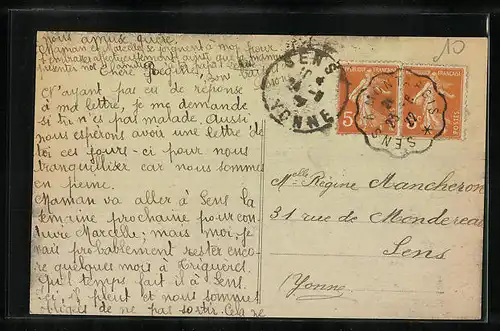 nous amuse guère.
Maman et Marcelle se joignent à moi pour
t'embrasser affectueusement ainsi que
présenter nos
Chère Régine,
N'ayant pas eu de réponse
à ma lettre, je me demande
si tu n'es pas malade. Aussi
nous espérons avoir une lettre de
toi ces jours-ci pour nous
tranquilliser car nous sommes
en peine.
Maman va aller à Sens la
semaine prochaine pour con-
duire Marcelle; mais moi, je
vais probablement rester enco-
re quelques mois à Triguères.
Quel temps fait il à Sens.
Ici il pleut et nous sommes
obligés de ne pas sortir. Cela ne
10
SENS
YONNE
5
POSTES
SENS A
Melle Régine Mancheron
31 rue de
Sens
(Yonne)